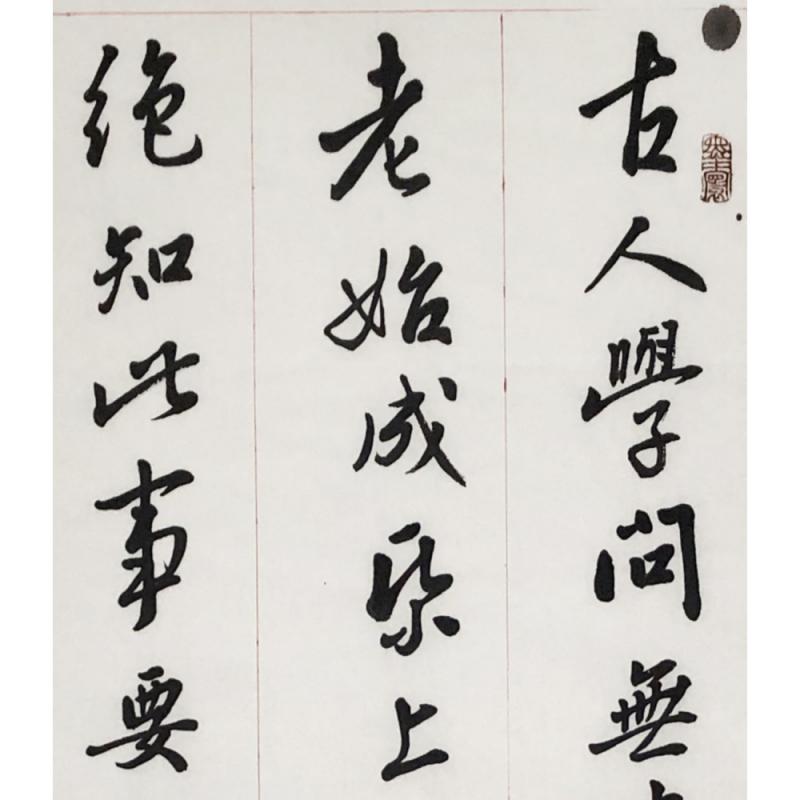 古人學問無
老始成紙上
絶知此事要